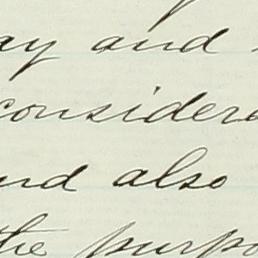 ay and
considere
nd also
the purpo